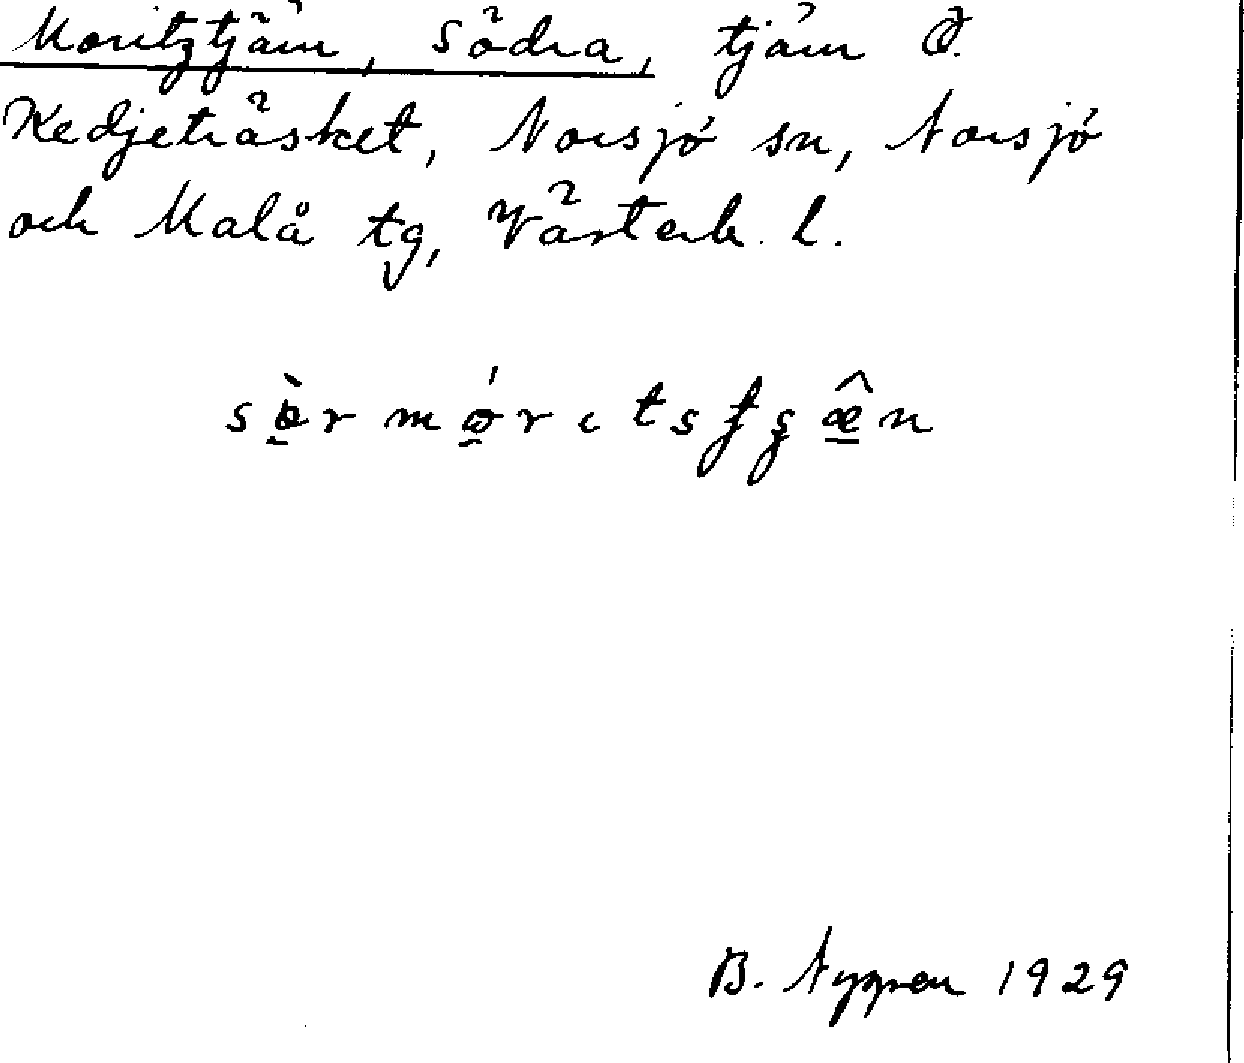 Moritztjärn, Södra, tjärn Ö.
Kedjeträsket, Norsjö sn, Norsjö
och Malå tg, Västerb. l.
B. Nygren 1929